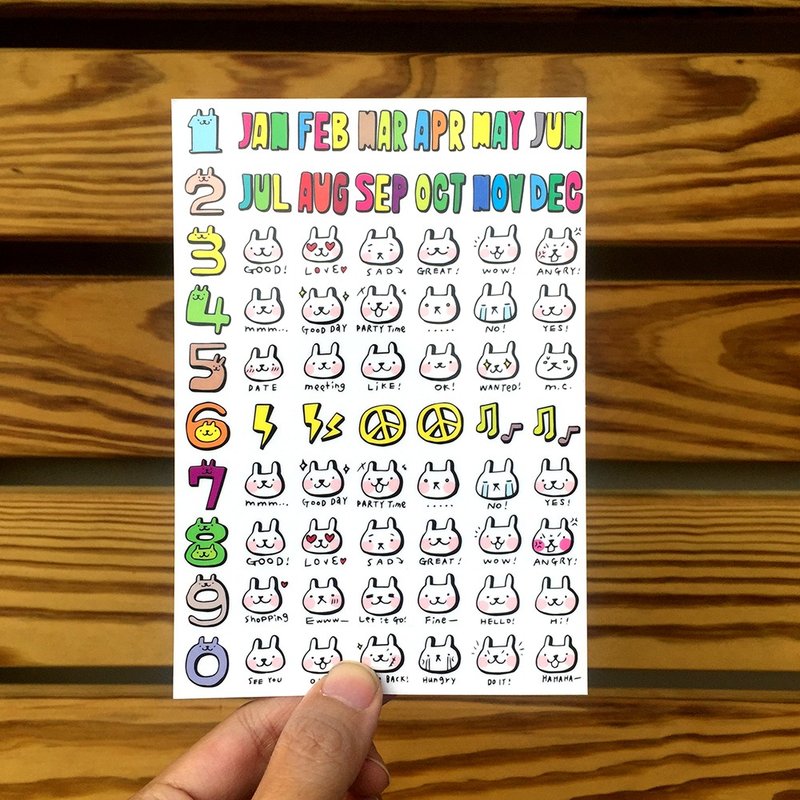 1 JAN FEB MAR APR MAY JUN
2 JUL AUG SEP OCT NOV DEC
3 GOOD! LOVE♥ SAD GREAT! WOW! ANGRY!
4 mmm... GOOD DAY PARTY Time ..... NO! YES!
5 DATE meeting LiKE! OK! WANTED! m.c.
6
7 mmm... GOOD DAY PARTY Time ..... NO! YES!
8 GOOD! LOVE♥ SAD GREAT! WOW! ANGRY!
9 SHOPPING Ewww— Let it Go! Fine— HELLO! Hi!
0 SEE YOU BACK! HUNGRY DO IT! HAHAHA—